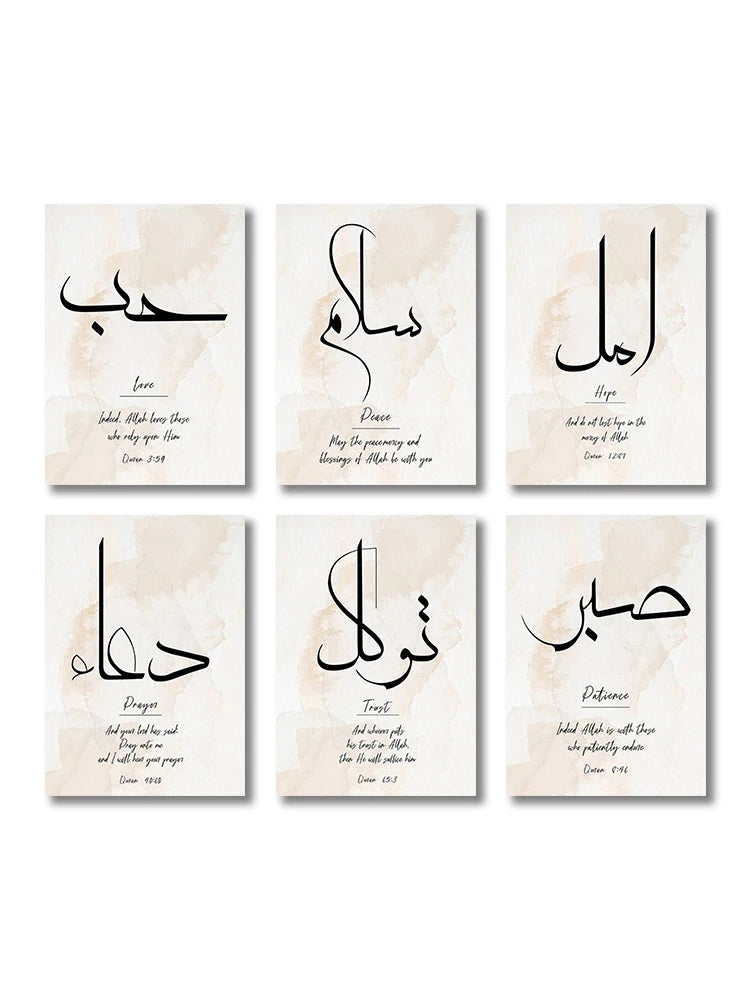 حب
Love
Indeed, Allah loves those
who rely upon Him
Quran 3:59
سلام
Peace
May the peace mercy and
blessings of Allah be with you
امل
Hope
And do not lost hope in the
mercy of Allah
Quran 12:87
دعاء
Prayer
And your lord has said:
Pray unto me
and I will hear your prayer
Quran 40:60
توكل
Trust
And whoever puts
his trust in Allah,
then He will suffice him
Quran 65:3
صبر
Patience
Indeed Allah is with those
who patiently endure
Quran 8:46